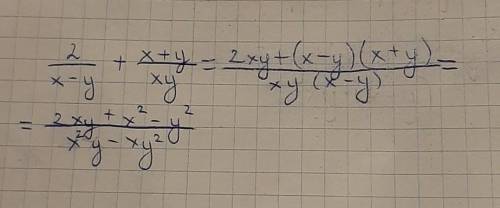 2/(x-y) + (x+y)/(xy) = (2xy+(x-y)(x+y))/(xy(x-y)) =
= (2xy+x²-y²)/(x²y-xy²)